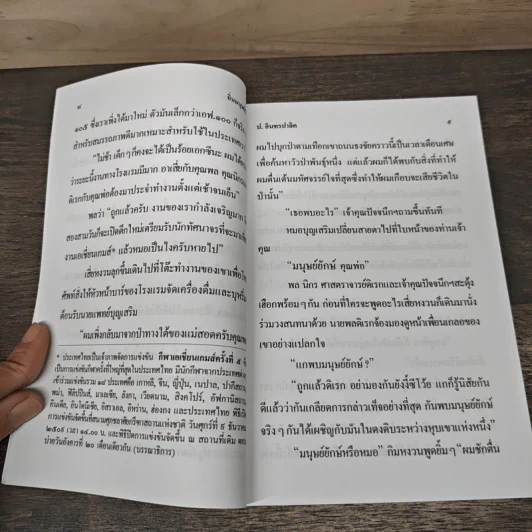 ๘
๑๐๕ ซึ่งเราเพิ่งได้มาใหม่ ตัวมันเล็กกว่าเอฟ.๑๐๐
สำหรับสมรรถภาพดีมากเหมาะสำหรับใช้ในประเทศ
“ไม่ช้า เด็กๆ ก็คงจะได้เป็นร้อยเอกซีนะ ผมได้
ว่าระยะนี้ทางโรงแรมมีมาก อาเสี่ยกับคุณพล คุณนิกร
ดิเรกกับคุณพ่อต้องมาประจำทำงานตั้งแต่เช้าจนเย็น”
พลว่า “ถูกแล้วครับ งานของเรากำลังเจริญมาก
สองสามวันก็จะเปิดตึกใหม่เตรียมรับนักทัศนาจรที่จะมา
งานเอเชี่ยนเกมส์* แล้วหมอเป็นไงครับหายไป”
เสี่ยหงวนลุกขึ้นเดินไปที่โต๊ะทำงานของเขาเพื่อ
ศัพท์สั่งให้หัวหน้าบาร์ของโรงแรมจัดเครื่องดื่มและบุหรี่
ต้อนรับนายแพทย์บุญเสริม
“ผมเพิ่งกลับมาจากป่าทางใต้ของแม่สอดครับคุณ
* ประเทศไทยเป็นเจ้าภาพจัดการแข่งขัน กีฬาเอเชี่ยนเกมส์ครั้งที่ ๕
เป็นการแข่งขันกีฬาครั้งที่ใหญ่ที่สุดในประเทศไทย มีนักกีฬาจากประเทศต่าง
เข้าร่วมแข่งขันรวม ๑๘ ประเทศคือ เกาหลี, จีน, ญี่ปุ่น, เนปาล, ปากีสถาน
พม่า, ฟิลิปปินส์, มาเลเซีย, ลังกา, เวียดนาม, สิงคโปร์, อัฟกานิสถาน
อินเดีย, อินโดนีเซีย, อิสราเอล, อิหร่าน, ฮ่องกง และประเทศไทย พิธีเปิด
การแข่งขันจัดขึ้นที่กรีฑาสถานแห่งชาติ วันศุกร์ที่ ๙ ธันวาคม
๒๕๐๙ เวลา ๑๔.๐๐ น. และพิธีปิดการแข่งขันจัดขึ้น ณ สถานที่เดิม
บ่ายวันอังคารที่ ๒๐ เดือนเดียวกัน (บรรณาธิการ)
ป. อินทรปาลิต ๙
ผมไปบุกป่าตามเทือกเขาถนนธงชัยคราวนี้เป็นเวลาเดือนเศษ
เพื่อค้นหาวัวป่าพันธุ์หนึ่ง แต่แล้วผมก็ได้พบกับสิ่งที่ทำให้
ผมตื่นเต้นมหัศจรรย์ใจที่สุดซึ่งทำให้ผมเกือบจะเสียชีวิตใน
ป่านั้น”
“เธอพบอะไร” เจ้าคุณปัจจนึกฯ ถามขึ้นทันที
หมอบุญเสริมเปลี่ยนสายตาไปที่ใบหน้าของท่านเจ้า
คุณ
“มนุษย์ยักษ์ คุณพ่อ”
พล นิกร ศาสตราจารย์ดิเรกและเจ้าคุณปัจจนึกฯ สะดุ้ง
เฮือกพร้อมๆ กัน ก่อนที่ใครจะพูดอะไรเสี่ยหงวนก็เดินมานั่ง
ร่วมวงสนทนาด้วย นายพลดิเรกจ้องมองดูหน้าเพื่อนเกลอของ
เขาอย่างแปลกใจ
“แกพบมนุษย์ยักษ์?”
“ถูกแล้วดิเรก อย่ามองกันยังงี้ซีโว้ย แกก็รู้นิสัยกัน
ดีแล้วว่ากันเกลียดการกล่าวเท็จอย่างที่สุด กันพบมนุษย์ยักษ์
จริงๆ กันได้เผชิญกับมันในดงดิบระหว่างหุบเขาแห่งหนึ่ง”
“มนุษย์ยักษ์หรือหมอ” กิมหงวนพูดยิ้มๆ “ผมชักตื่น